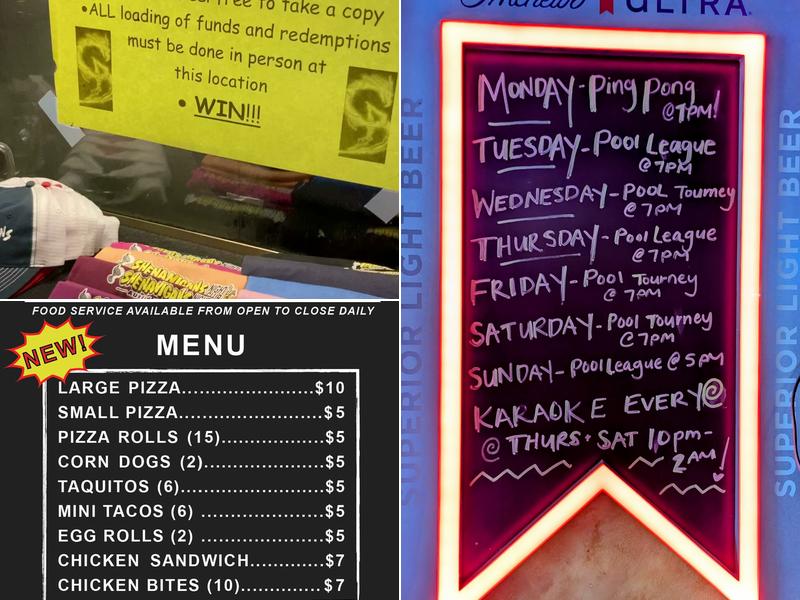 free to take a copy
•ALL loading of funds and redemptions
must be done in person at
this location
• WIN!!!
SHENANIGANS
SHENANIGANS
FOOD SERVICE AVAILABLE FROM OPEN TO CLOSE DAILY
NEW!
MENU
LARGE PIZZA....................$10
SMALL PIZZA......................$5
PIZZA ROLLS (15)................$5
CORN DOGS (2)..................$5
TAQUITOS (6)......................$5
MINI TACOS (6) ..................$5
EGG ROLLS (2) ..................$5
CHICKEN SANDWICH............$7
CHICKEN BITES (10).............$7
ULTRA
SUPERIOR LIGHT BEER
SUPERIOR LIGHT BEER
MONDAY-Ping Pong
@7PM!
TUESDAY-Pool League
@7PM
WEDNESDAY-POOL Tourney
@7PM
THURSDAY-Pool League
@7PM
FRIDAY-Pool Tourney
@7PM
SATURDAY-Pool Tourney
@7PM
SUNDAY-Pool League @5PM
KARAOKE EVERY@
@ THURS+SAT 10pm-
2AM!